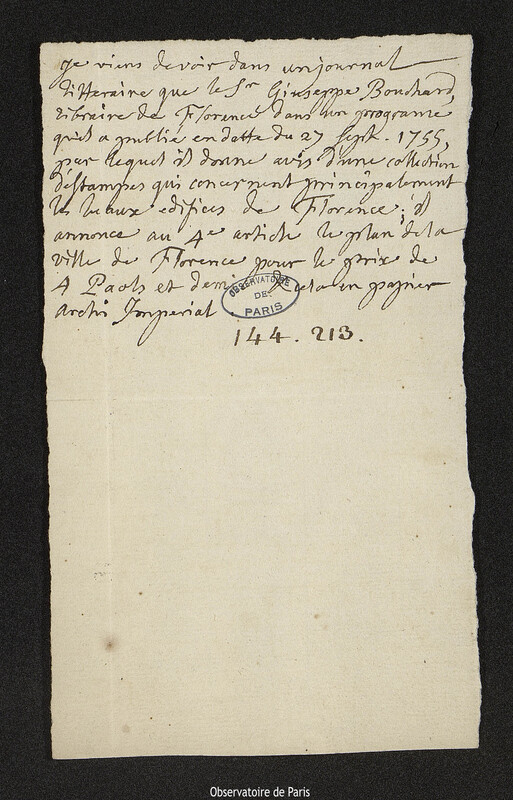 je viens de voir dans un journal
litteraire que le Sr Giuseppe Bouchard,
libraire de Florence dans un programe
qu'il a publié en datte du 27 sept. 1755,
par lequel il donne avis d'une collection
d'estampes qui concernent principalement
les beaux edifices de Florence; il
annonce au 4e article le plan de la
ville de Florence pour le prix de
4 Paols et demi cela en papier
archi Imperial.
OBSERVATOIRE
DE
PARIS
144. 213.
Observatoire de Paris